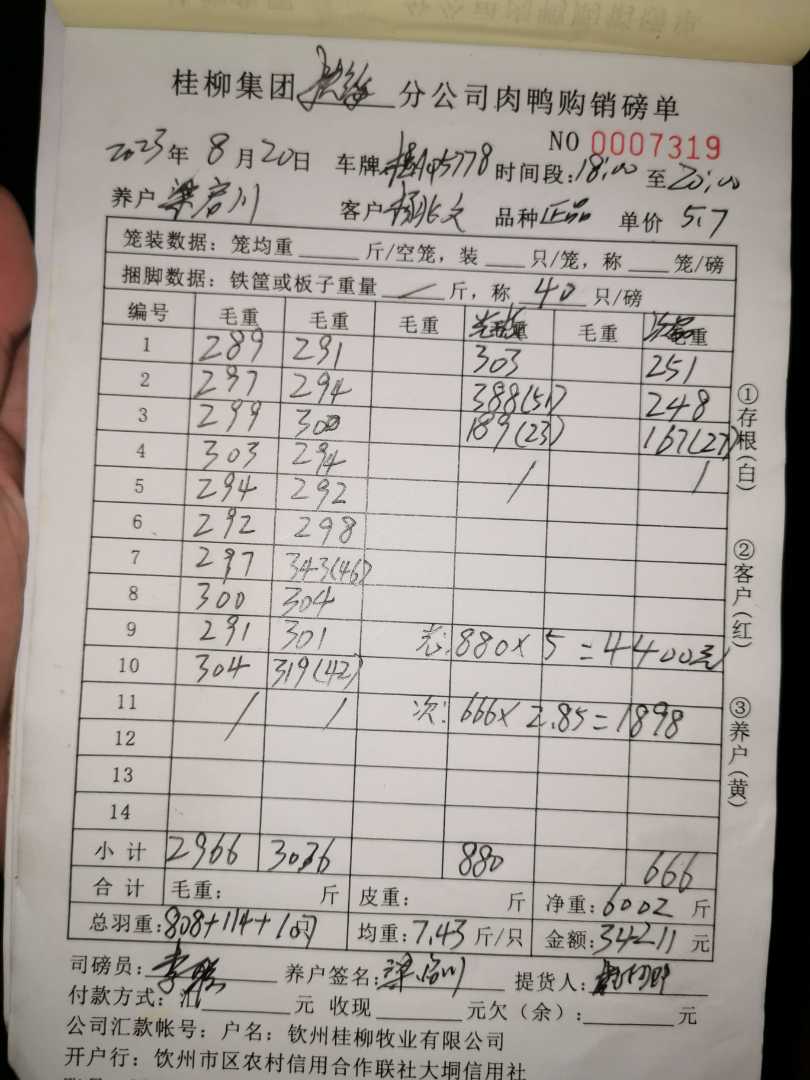 桂柳集团 分公司肉鸭购销磅单
NO 0007319
2023年 8月20日 车牌:桂 5778 时间段:18:00 至20:00
养户 梁 川 客户 杨 文 品种 正品 单价 5.7
笼装数据: 笼均重 斤/空笼, 装 只/笼, 称 笼/磅
捆脚数据: 铁筐或板子重量 / 斤, 称 40 只/磅
编号 毛重 毛重 毛重 毛重 毛重
1 289 291 303 251
2 297 294 388(51) 248
3 299 300 189(23) 167(27)
4 303 294 / /
5 294 292
6 292 298
7 297 343(46)
8 300 304
9 291 301 光:880×5=4400元
10 304 319(42)
11 / / 次:666×2.85=1898
12
13
14
小计 2966 3036 880 666
合计 毛重: 斤 皮重: 斤 净重:6002 斤
总羽重:808+114+ 均重:7.43 斤/只 金额:34211 元
司磅员:李 养户签名: 川 提货人:
付款方式:汇 元 收现 元欠(余): 元
公司汇款帐号:户名:钦州桂柳牧业有限公司
开户行:钦州市区农村信用合作联社大垌信用社
①存根(白)
②客户(红)
③养户(黄)